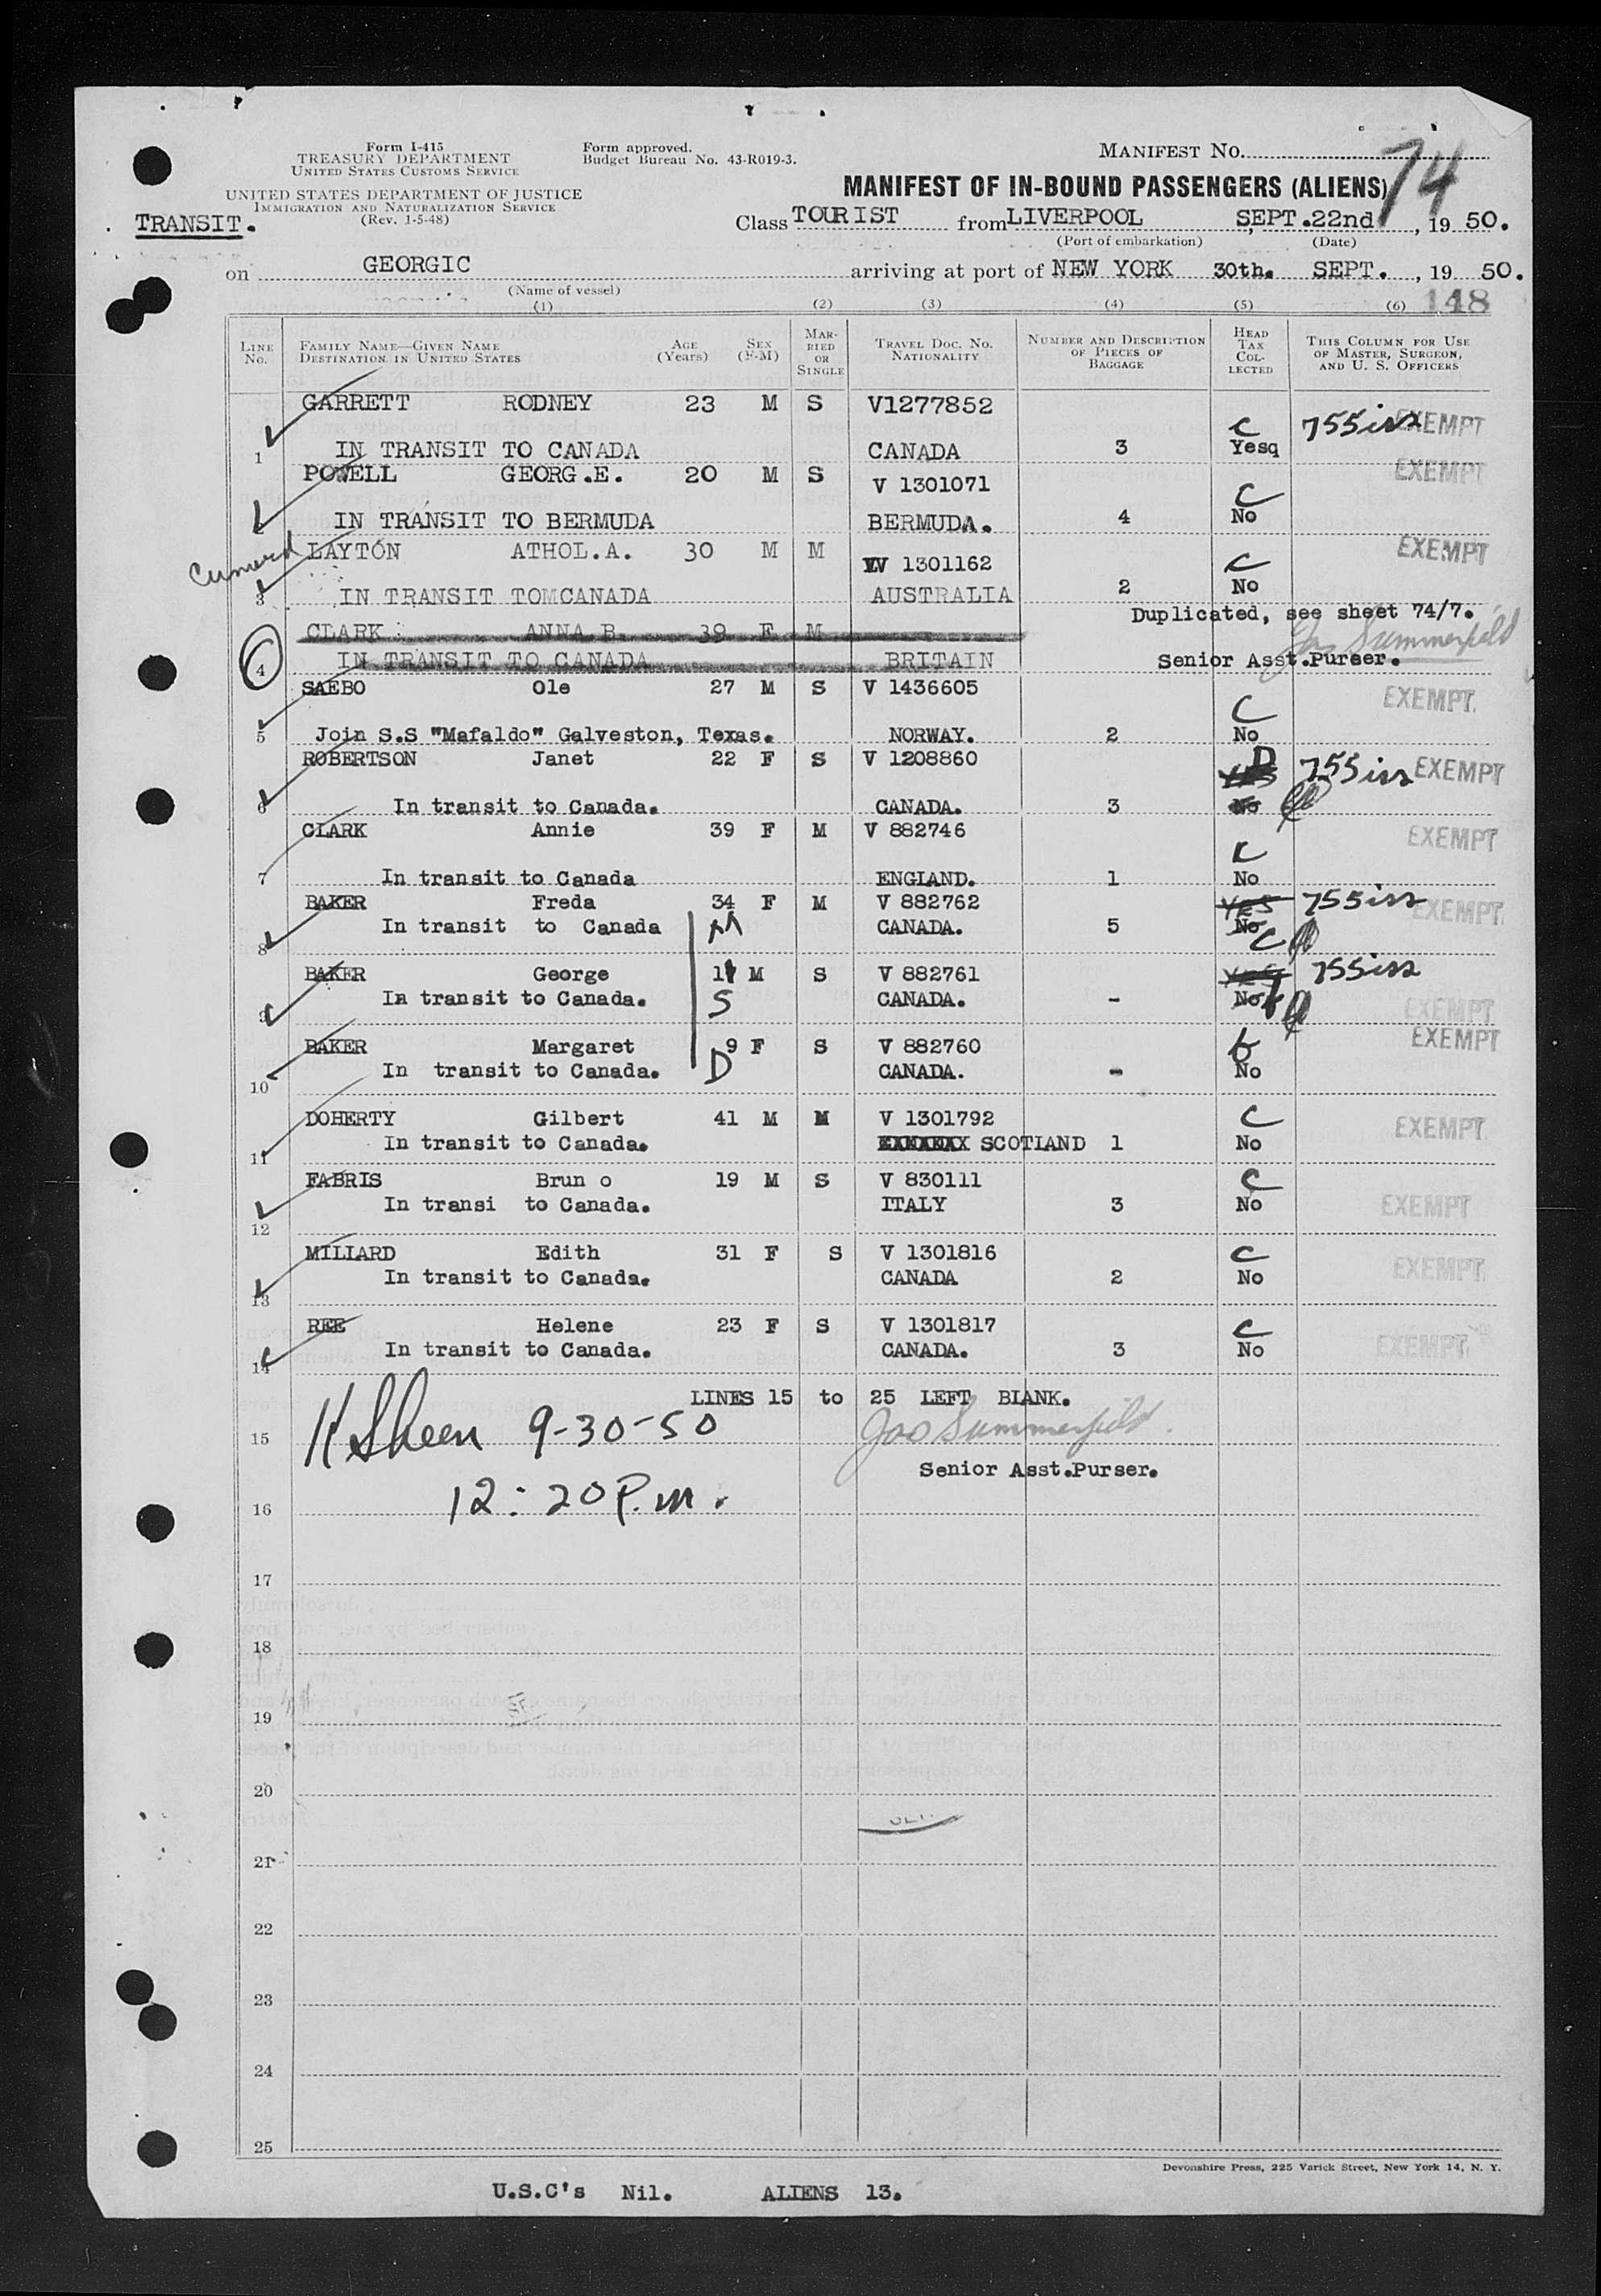 Form I-415
TREASURY DEPARTMENT
UNITED STATES CUSTOMS SERVICE
Form approved.
Budget Bureau No. 43-R019-3.
MANIFEST NO.
74
UNITED STATES DEPARTMENT OF JUSTICE
IMMIGRATION AND NATURALIZATION SERVICE
(Rev. 1-5-48)
MANIFEST OF IN-BOUND PASSENGERS (ALIENS)
TRANSIT.
Class TOURIST from LIVERPOOL, SEPT.22nd, 19 50.
(Port of embarkation) (Date)
on GEORGIC arriving at port of NEW YORK 30th. SEPT., 19 50.
(Name of vessel)
(1) (2) (3) (4) (5) (6) 148
LINE No. FAMILY NAME—GIVEN NAME DESTINATION IN UNITED STATES AGE (Years) SEX (F-M) MARRIED OR SINGLE TRAVEL DOC. NO. NATIONALITY NUMBER AND DESCRIPTION OF PIECES OF BAGGAGE HEAD TAX COLLECTED THIS COLUMN FOR USE OF MASTER, SURGEON, AND U. S. OFFICERS
GARRETT RODNEY 23 M S V1277852 C 755iss EXEMPT
1 IN TRANSIT TO CANADA CANADA 3 Yesq
POWELL GEORG.E. 20 M S V 1301071 C EXEMPT
IN TRANSIT TO BERMUDA BERMUDA. 4 No
LAYTON ATHOL.A. 30 M M V 1301162 C EXEMPT
3 IN TRANSIT TOMCANADA AUSTRALIA 2 No
Duplicated, see sheet 74/7.
CLARK ANNA B. 39 F M
Jas Summerfield
4 IN TRANSIT TO CANADA BRITAIN Senior Asst.Purser.
SAEBO Ole 27 M S V 1436605 C EXEMPT
5 Join S.S "Mafaldo" Galveston, Texas. NORWAY. 2 No
ROBERTSON Janet 22 F S V 1208860 YES D 755iss EXEMPT
6 In transit to Canada. CANADA. 3 No
CLARK Annie 39 F M V 882746 C EXEMPT
7 In transit to Canada ENGLAND. 1 No
BAKER Freda 34 F M V 882762 YES 755iss EXEMPT
8 In transit to Canada M CANADA. 5 No C
BAKER George 11 M S V 882761 YES 755iss
9 In transit to Canada. S CANADA. - No EXEMPT
BAKER Margaret 9 F S V 882760 EXEMPT
10 In transit to Canada. D CANADA. - No
DOHERTY Gilbert 41 M M V 1301792 C EXEMPT
11 In transit to Canada. SCOTLAND 1 No
FABRIS Brun o 19 M S V 830111 C
12 In transi to Canada. ITALY 3 No EXEMPT
MILLARD Edith 31 F S V 1301816 C
13 In transit to Canada. CANADA 2 No EXEMPT
REE Helene 23 F S V 1301817 C
14 In transit to Canada. CANADA. 3 No EXEMPT
LINES 15 to 25 LEFT BLANK.
15 H Sheen 9-30-50 Jas Summerfield
Senior Asst.Purser.
16 12:20 P.m.
17
18
19
20
21
22
23
24
25
Devonshire Press, 225 Varick Street, New York 14, N. Y.
U.S.C's Nil. ALIENS 13.